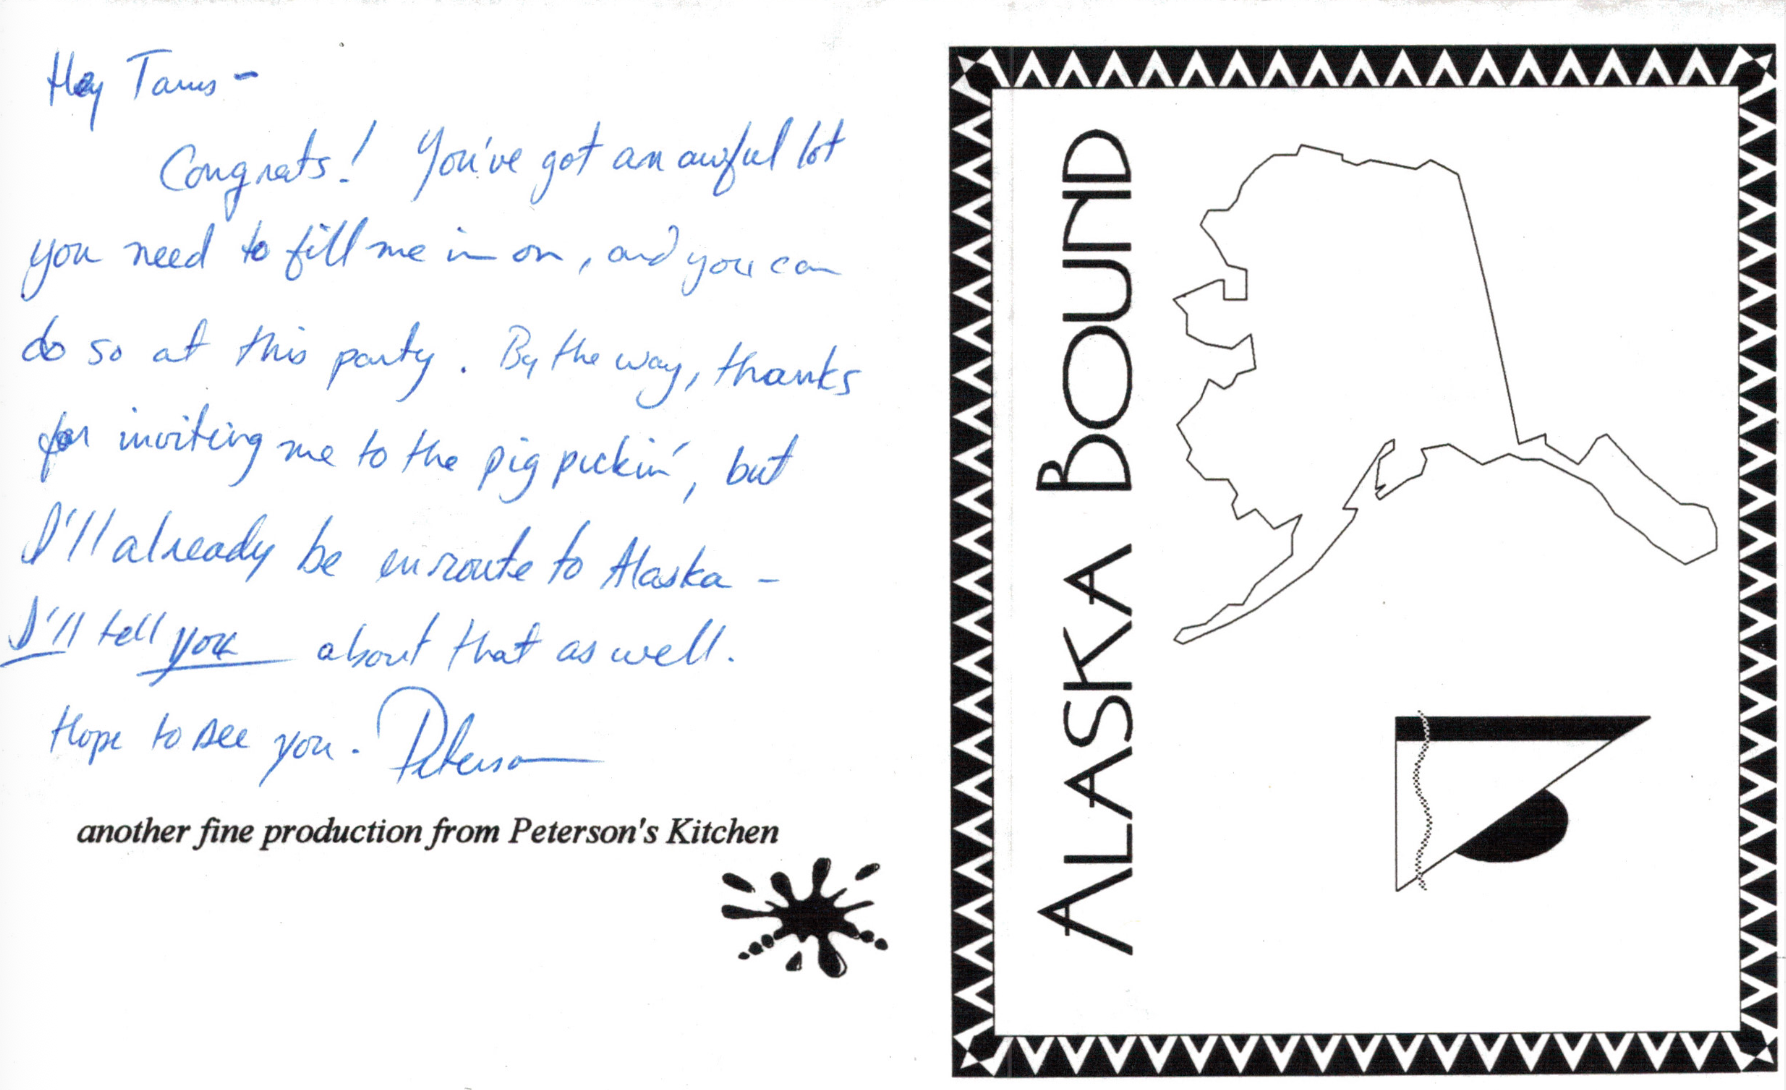 Hey Tams -
Congrats! You've got an awful lot
you need to fill me in on, and you can
do so at this party. By the way, thanks
for inviting me to the pig pickin', but
I'll already be enroute to Alaska -
I'll tell you about that as well.
Hope to see you. Peterson
another fine production from Peterson's Kitchen
ALASKA BOUND